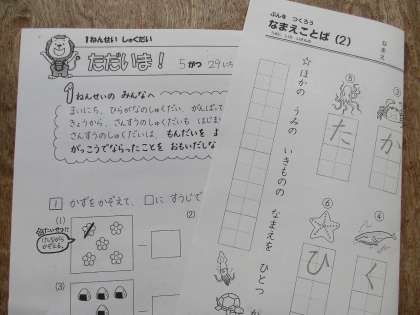 1ねんせい しゅくだい
ただいま!
5がつ 29にち
1ねんせいの みんなへ
まいにち、ひらがなのしゅくだい、がんばって
きょうから、さんすうのしゅくだいも はじま
さんすうのしゅくだいは、もんだいを よ
がっこうでならったことを おもいだしな
1 かずをかぞえて、□に すうじで
(1)
(2)
けしながら
かぞえる。
(3)
ぶんを つくろう
なまえことば (2)
なまえ
☆ほかの うみの いきものの なまえを ひとつ か
③
か
④
く
⑤
た
⑥
ひ